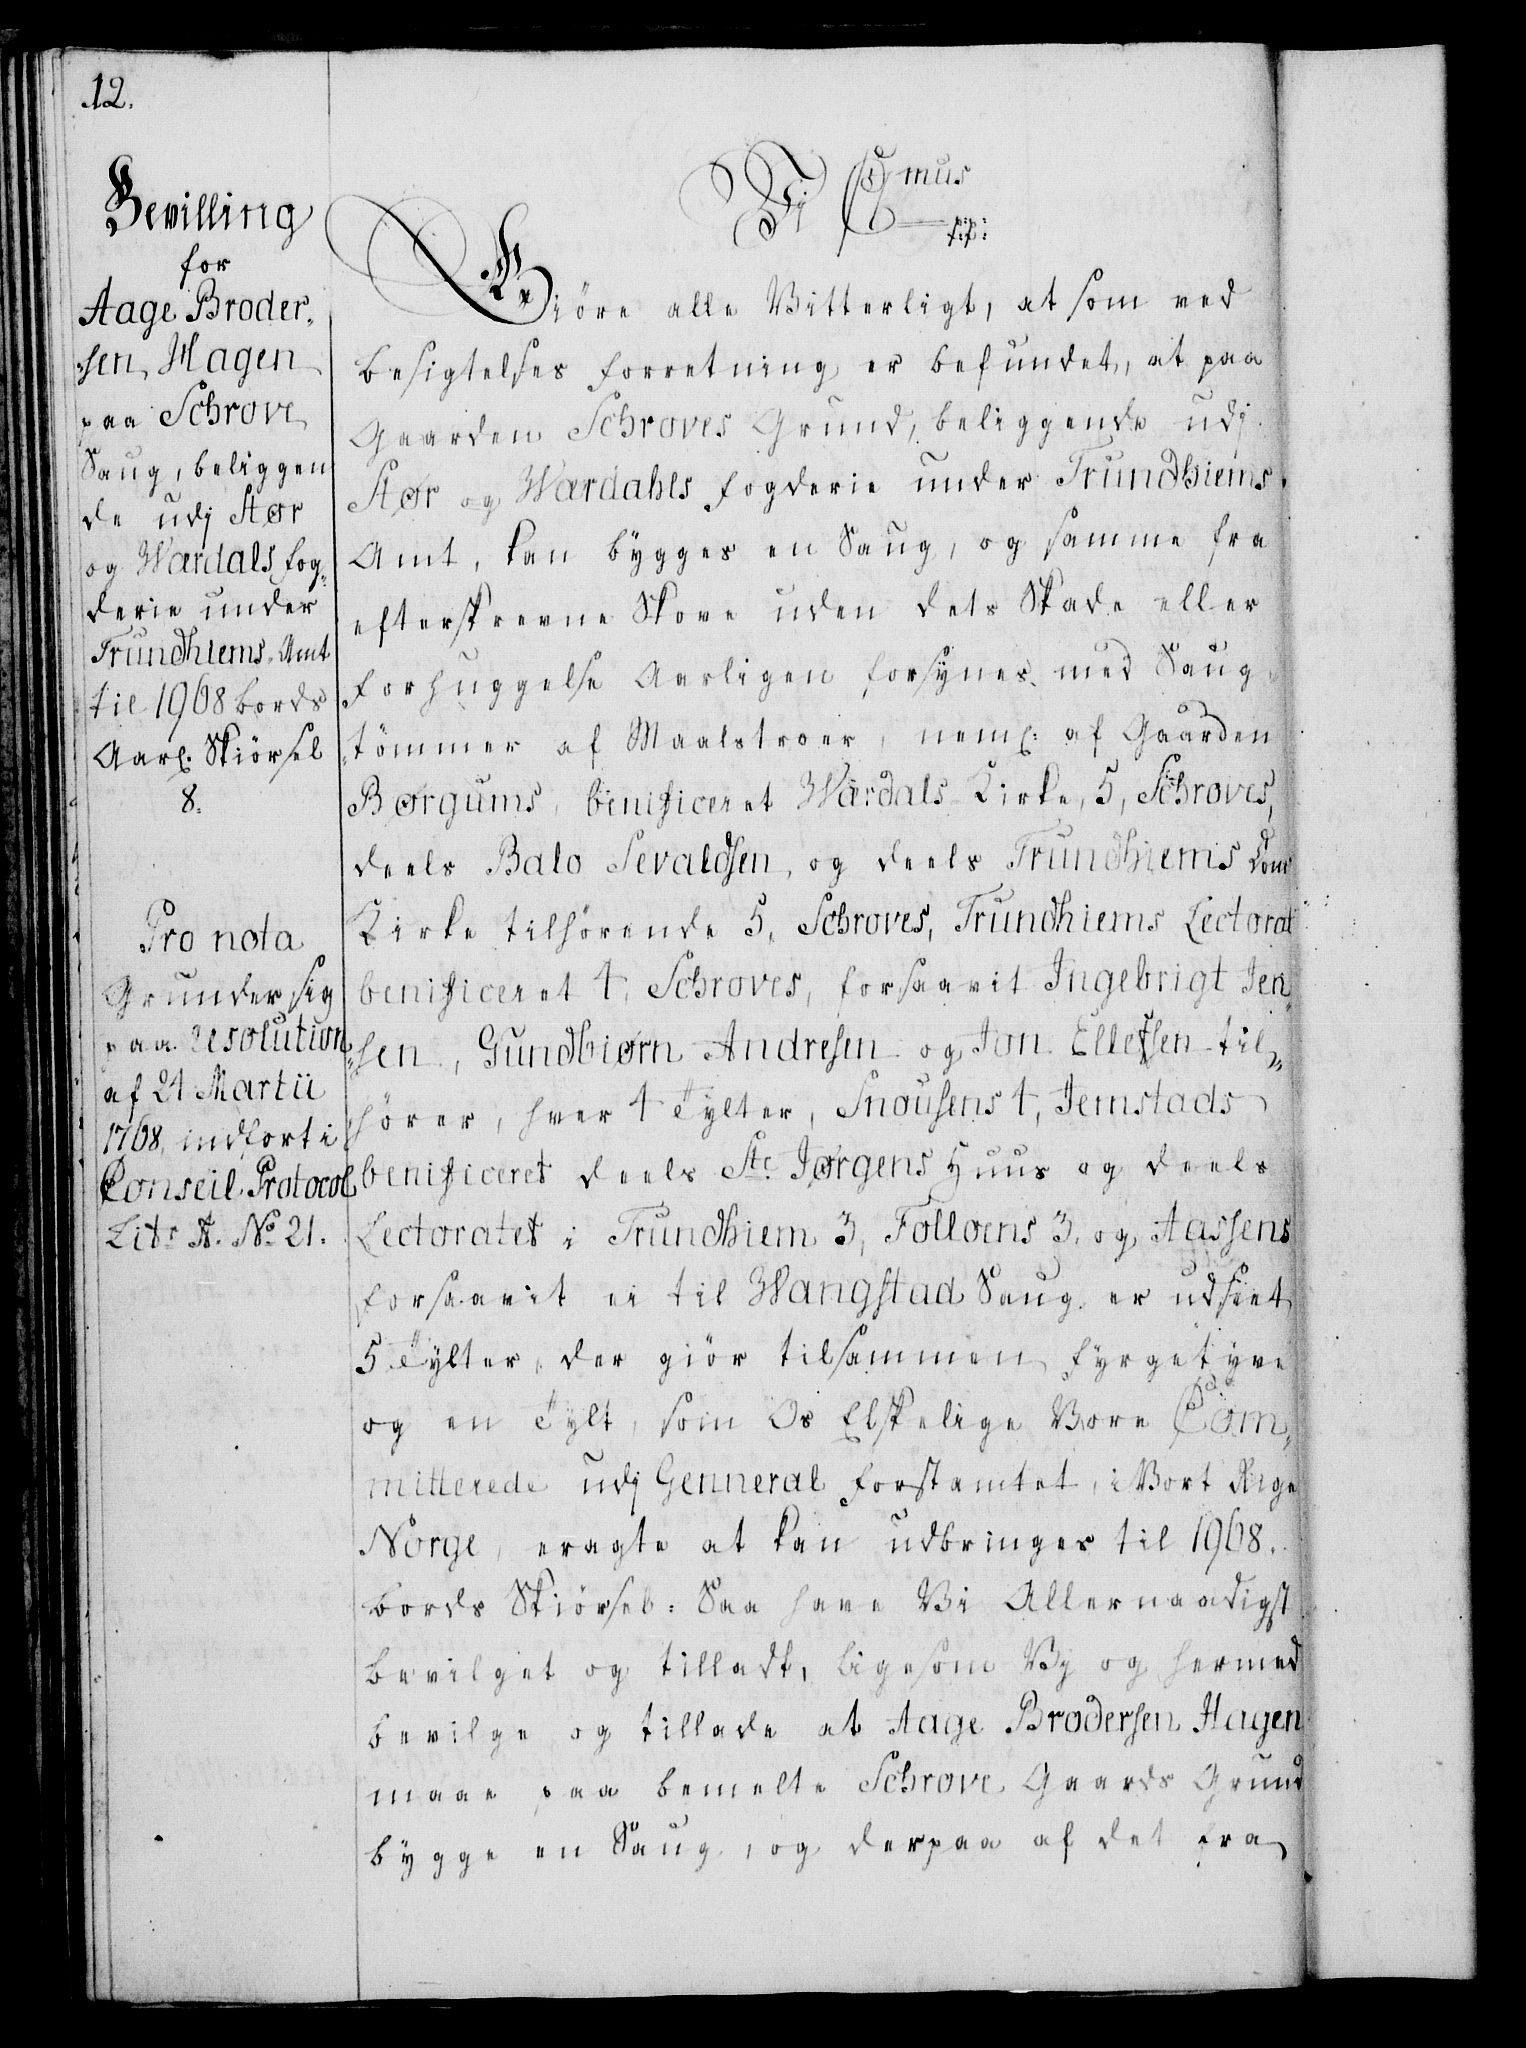 12.
Bevilling
for
Aage Broder„
„sen Hagen
paa Schrove
Saug, beliggen
de udj Stør
og Wærdals fog„
derie under
Trundhiems Amt
til 1968 bords
Aarl. Skiörsel
8.
Pro nota
Grunder sig
paa Resolution
af 24 Martii
1768, indfort i
Conseil Protocol
Litr A. No 21.
Vi Cmus
p:p:
Giöre alle Vitterligt, at som ved
besigtelses forretning er befundet, at paa
Gaarden Schroves Grund, beliggende udj
Stør og Wærdahls fogderie under Trundhiems
Amt, kan bygges en Saug, og samme fra
efterskrevne Skove uden dets Skade eller
forhuggelse Aarligen forsynes med Saug„
„tömmer af Maalstroer, neml: af Gaarden
Børgums, benificeret Wærdals Kirke, 5, Schroves,
deels Balo Sevaldsen, og deels Trundhiems Dom
Kirke tilhörende 5, Schroves, Trundhiems Lectorat
benificeret 4, Schroves, forsaavit Ingebrigt Jen„
„sen, Gundbiørn Andresen og Jon Elletsen til„
„hörer, hver 4 Tylter, Snousens 4, Jemstads
benificeret deels Stc Jørgens Huus og deels
Lectoratet i Trundhiem 3, Folloens 3, og Aassens
forsaavit ei til Wangstad Saug er udseet
5 Tylter, der giör tilsammen fyrgetyve
og en Tylt, som Os Elskelige Vore Com„
mitterede udj Genneral forstamtet, i Vort Rige
Norge, eragte at kan udbringes til 1968.
bords Skiörsel: Saa have Vi Allernaadigst
bevilget og tilladt, ligesom Vy og hermed
bevilge og tillade at Aage Brodersen Hagen
maae paa bemelte Schrove Gaards Grund
bygge en Saug, og derpaa af det fra